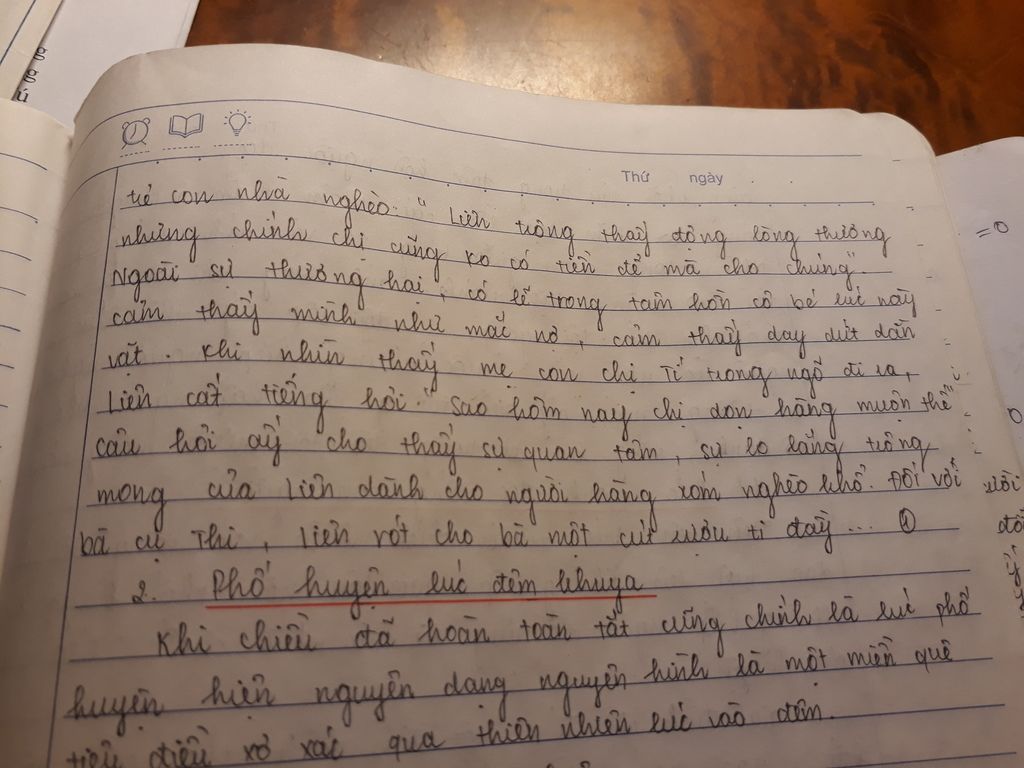 g
g
ú
Thứ ngày
trẻ con nhà nghèo "Liên trông thấy động lòng thương
nhưng chính chị cũng ko có tiền để mà cho chúng".
Ngoài sự thương hại, có lẽ trong tâm hồn cô bé lúc này
cảm thấy mình như mắc nợ, cảm thấy day dứt dằn
vặt. Khi nhìn thấy mẹ con chị Tí trong ngõ đi ra,
Liên cất tiếng hỏi: "Sao hôm nay chị dọn hàng muộn thế"
câu hỏi ấy cho thấy sự quan tâm, sự lo lắng trông
mong của Liên dành cho người hàng xóm nghèo khổ. Đối với
bà cụ Thi, Liên rót cho bà một cút rượu ti đầy... ①
2. Phố huyện lúc đêm khuya
Khi chiều đã hoàn toàn tắt cũng chính là lúc phố
huyện hiện nguyên dạng nguyên hình là một miền quê
tiêu điều xơ xác qua thiên nhiên lúc vào đêm.
=0
0